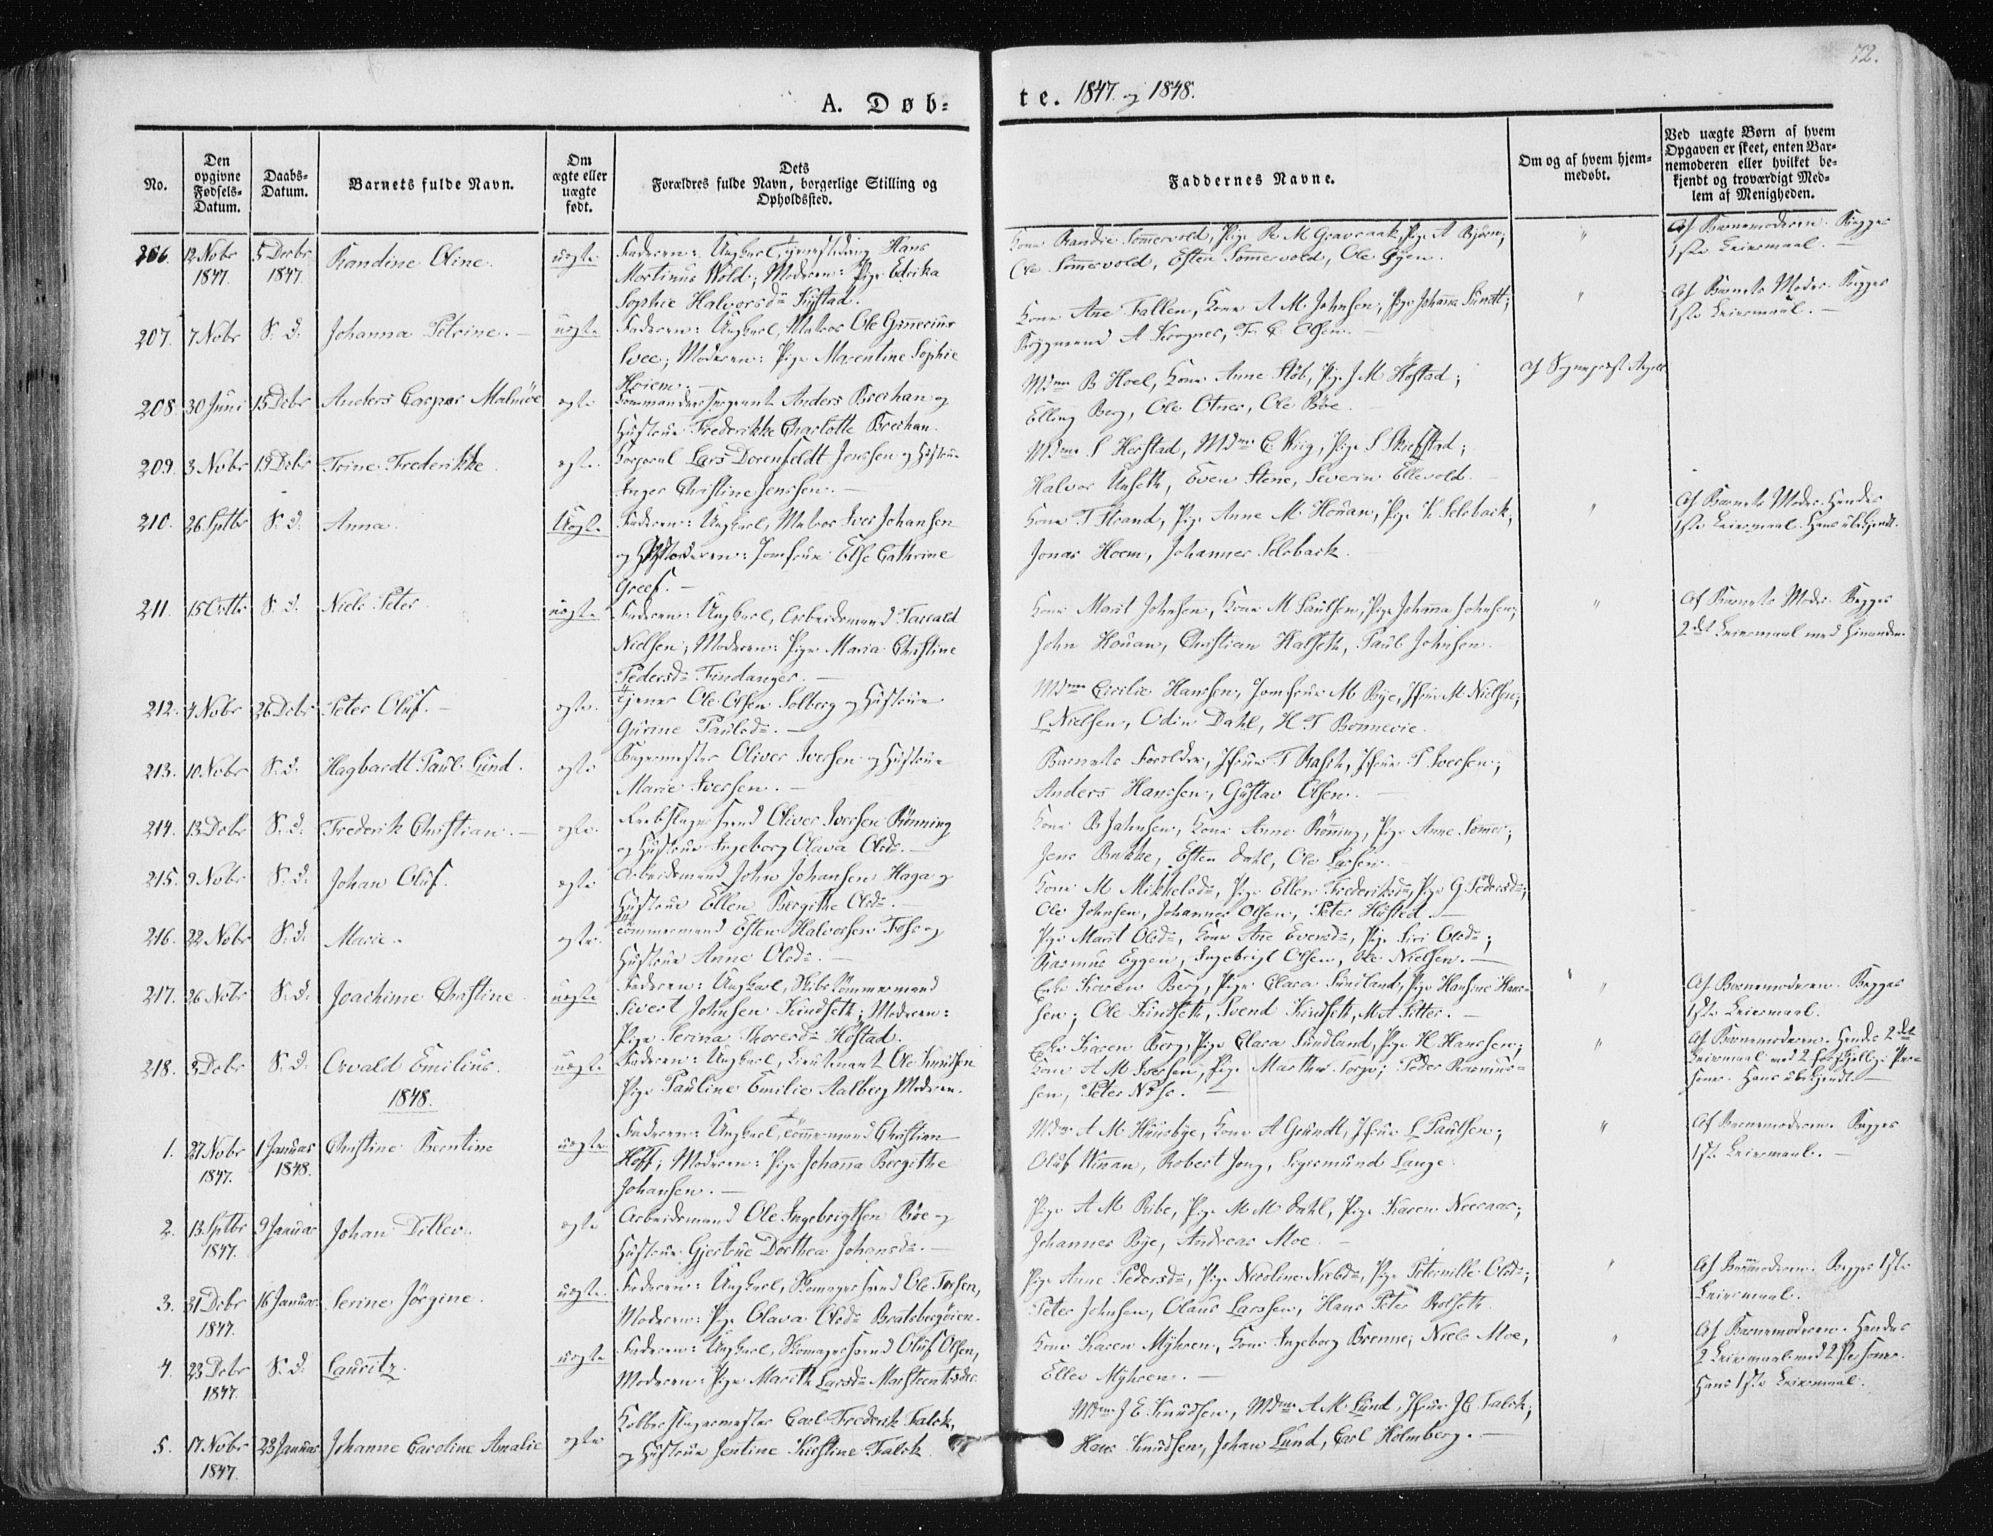 72.
A. Døb-
te. 1847. og 1848.
No.
Den
opgivne
Fødsels-
Datum.
Daabs-
Datum.
Barnets fulde Navn.
Om
ægte eller
uægte
født.
Dets
Forældres fulde Navn, borgerlige Stilling og
Opholdssted.
Faddernes Navne.
Om og af hvem hjem-
medøbt.
Ved uægte Børn af hvem
Opgaven er skeet, enten Bar-
nemoderen eller hvilket be-
kjendt og troværdigt Med-
lem af Menigheden.
206. 12 Nobr 5 Decbr Randine Oline. uægte Faderen: Ungkarl, Hans
1847. 1847. Mortinus Wold; Moderen: Pige Edrika
Sophie Halvorsd. Kystad.
Kone Randie Sommervold, Pige R M Gravraak, Pige A Bjørn;
Ole Sommervold, Esten Sommervold, Ole Øyen.
Af Barnemoderen. Begges
1ste Leiermaal.
207. 7 Nobr S. d. Johanna Petrine. uægte Faderen: Ungkarl, Matros Ole
Svee; Moderen: Pige Marentine Sophie
Hoiem.
Kone Ane Fallen, Kone A M Johnsen, Pige Johanna
A Krognes, E Olsen.
Af Barnets Moder. Begges
1ste Leiermaal.
208. 30 Juni 15 Debr Anders Caspar ægte Anders Breihan og
Hustrue Frederikke Charlotte Breihan.
Mdme B Hoel, Kone Anne Stöb, Pige J M Höstad;
Elling Berg, Ole Otnes, Ole Böe.
Af Sogneprest
209. 3 Nobr 19 Debr Trine Frederikke. ægte. Korporal Lars Dorenfeldt Jenssen og Hustrue
Inger Christine Jenssen.
Mdme S Herstad, Mdme C Wiig, Pige S
Halvor Unseth, Even Stene, Severin Ellevold.
210. 26 Septbr S. d. Anna. Uægte Faderen: Ungkarl, Matros Iver Johansen
og Moderen: Jomfrue Else Cathrine
Greef.
Kone T Strand, Pige Anne M Houan, Pige K Selsback,
Jonas Hoem, Johannes Selsback.
Af Barnets Moder. Hendes
1ste Leiermaal. Hans ubekjendt.
211. 15 Octbr S. d. Niels Peter. uægte Faderen: Ungkarl, Arbeidsmand
Nielsen; Moderen: Pige Maria Christine
Pedersd. Findanger.
Kone Marit Johnsen, Kone M Paulsen, Pige Johanna Johnsen,
John Houan, Christian Halseth, Paul Johnsen.
Af Barnets Moder. Begges
2det Leiermaal med hinanden.
212. 4 Nobr 26 Debr Peter Oluf. ægte. Tjener Ole Olsen Solberg og Hustrue
Gurine Paulsd.
Mdme Cecilie Hanssen, Jomfrue M Bye, Jfrue M Nielsen;
L Nielsen, Odin Dahl, H T Bonnevie.
213. 10 Nobr S. d. Hagbardt Paul Lund. ægte Bagermester Oliver Iversen og Hustrue
Marie Iversen.
Barnets Forældre, Jfrue T Rasch, Jfrue P Iversen;
Anders Hanssen, Gustav Olsen.
214. 13 Debr S. d. Frederik Christian. ægte. Oliver Iversen Rönning
og Hustrue Ingeborg Olava Olsd.
Kone B Jahnsen, Kone Anne Rönning, Pige Anne Sommer;
Jens Bakke, Esten Dahl, Ole Larsen.
215. 9 Nobr S. d. Johan Oluf. ægte Arbeidsmand John Johansen Haga og
Hustrue Ellen Bergithe Olsd.
Kone M Mikkelsd., Pige Ellen Frederiksd., Pige G Pedersd.;
Ole Johnsen, Johannes Olsen, Peter Hösted.
216. 22 Nobr S. d. Marie. ægte. Tömmermand Esten Halvorsen Fosse og
Hustrue Anne Olsd.
Pige Marit Olsd., Kone Ane Evensd., Pige Siri Olsd.;
Rasmus Eggen, Ingebrigt Olsen, Ole Nielsen.
217. 26 Nobr S. d. Joachime Christine. uægte Faderen: Ungkarl, Skibstömmermand
Sivert Johnsen Kindseth; Moderen:
Pige Serina Thoresd. Höstad.
Enke Karen Berg, Pige Clara Sundland, Pige Hansine Hans-
sen; Ole Kindseth, Svend Kindseth, M A Sitter.
Af Barnemoderen. Begges
1ste Leiermaal.
218. 3 Debr S. d. Osvald Emilius. uægte Faderen: Ungkarl, Lieutenant Ole Knudsen
Pige Pauline Emilie Aalberg Moderen.
Enke Karen Berg, Pige Clara Sundland, Pige H Hanssen;
Kone A M Iversen, Pige Marthe Torp; Peder Rasmus-
sen, Peter
Af Barnemoderen. Hendes 2det
Leiermaal med 2 forskjellige Per-
soner. Hans ubekjendt.
1848.
1. 27 Nobr 1 Januar Christine Berntine uægte Faderen: Ungkarl, Tömmermand Christian
1847. 1848. Hoff; Moderen: Pige Johanna Bergithe
Johansen.
Mdme A M Huusbye, Kone A Grundt, Jfrue L Paulsen;
Oluf Wiman, Robert Jong, Sigismund Lange
Af Barnemoderen. Begges
1ste Leiermaal.
2. 13 Septbr 9 Januar Johan Ditlev. ægte Arbeidsmand Ole Ingebrigtsen Böe og
1847. Hustrue Gjertrue Dorthea Johansd.
Pige A M Ribe, Pige M M Dahl, Pige Karen Neeraas;
Johannes Bye, Andreas Moe.
3. 31 Debr 16 Januar Serine Jörgine. uægte. Faderen: Ungkarl, Skomagersvend Ole Larsen,
1847. Moderen: Pige Olava Olsd. Bratsbergöien.
Pige Anne Pedersd., Pige Nicoline Nielsd., Pige Peternille Olsd.;
Peter Johnsen, Olaus Larssen, Hans Peter Rolseth.
Af Barnemoderen. Begges 1ste
Leiermaal.
4. 23 Debr S. d. Lauritz. uægte Faderen: Ungkarl, Skomagersvend Oluf Olsen,
1847. Moderen: Pige Marith Larsd.
Kone Karen Myhren, Kone Ingeborg Brenne; Niels Moe,
Ellev Myhren.
Af Barnemoderen. Hendes
2 Leiermaal med 2 Personer.
Hans 1ste Leiermaal.
5. 17 Nobr 23 Januar Johanne Caroline Amalie ægte Kobberslagermester Carl Frederik Falck,
1847. og Hustrue Jentine Kirstine Falck
Mdme J E Knudsen, Mdme A M Lund, Jfrue J C Falck;
Hans Knudsen, Johan Lund, Carl Holmberg.